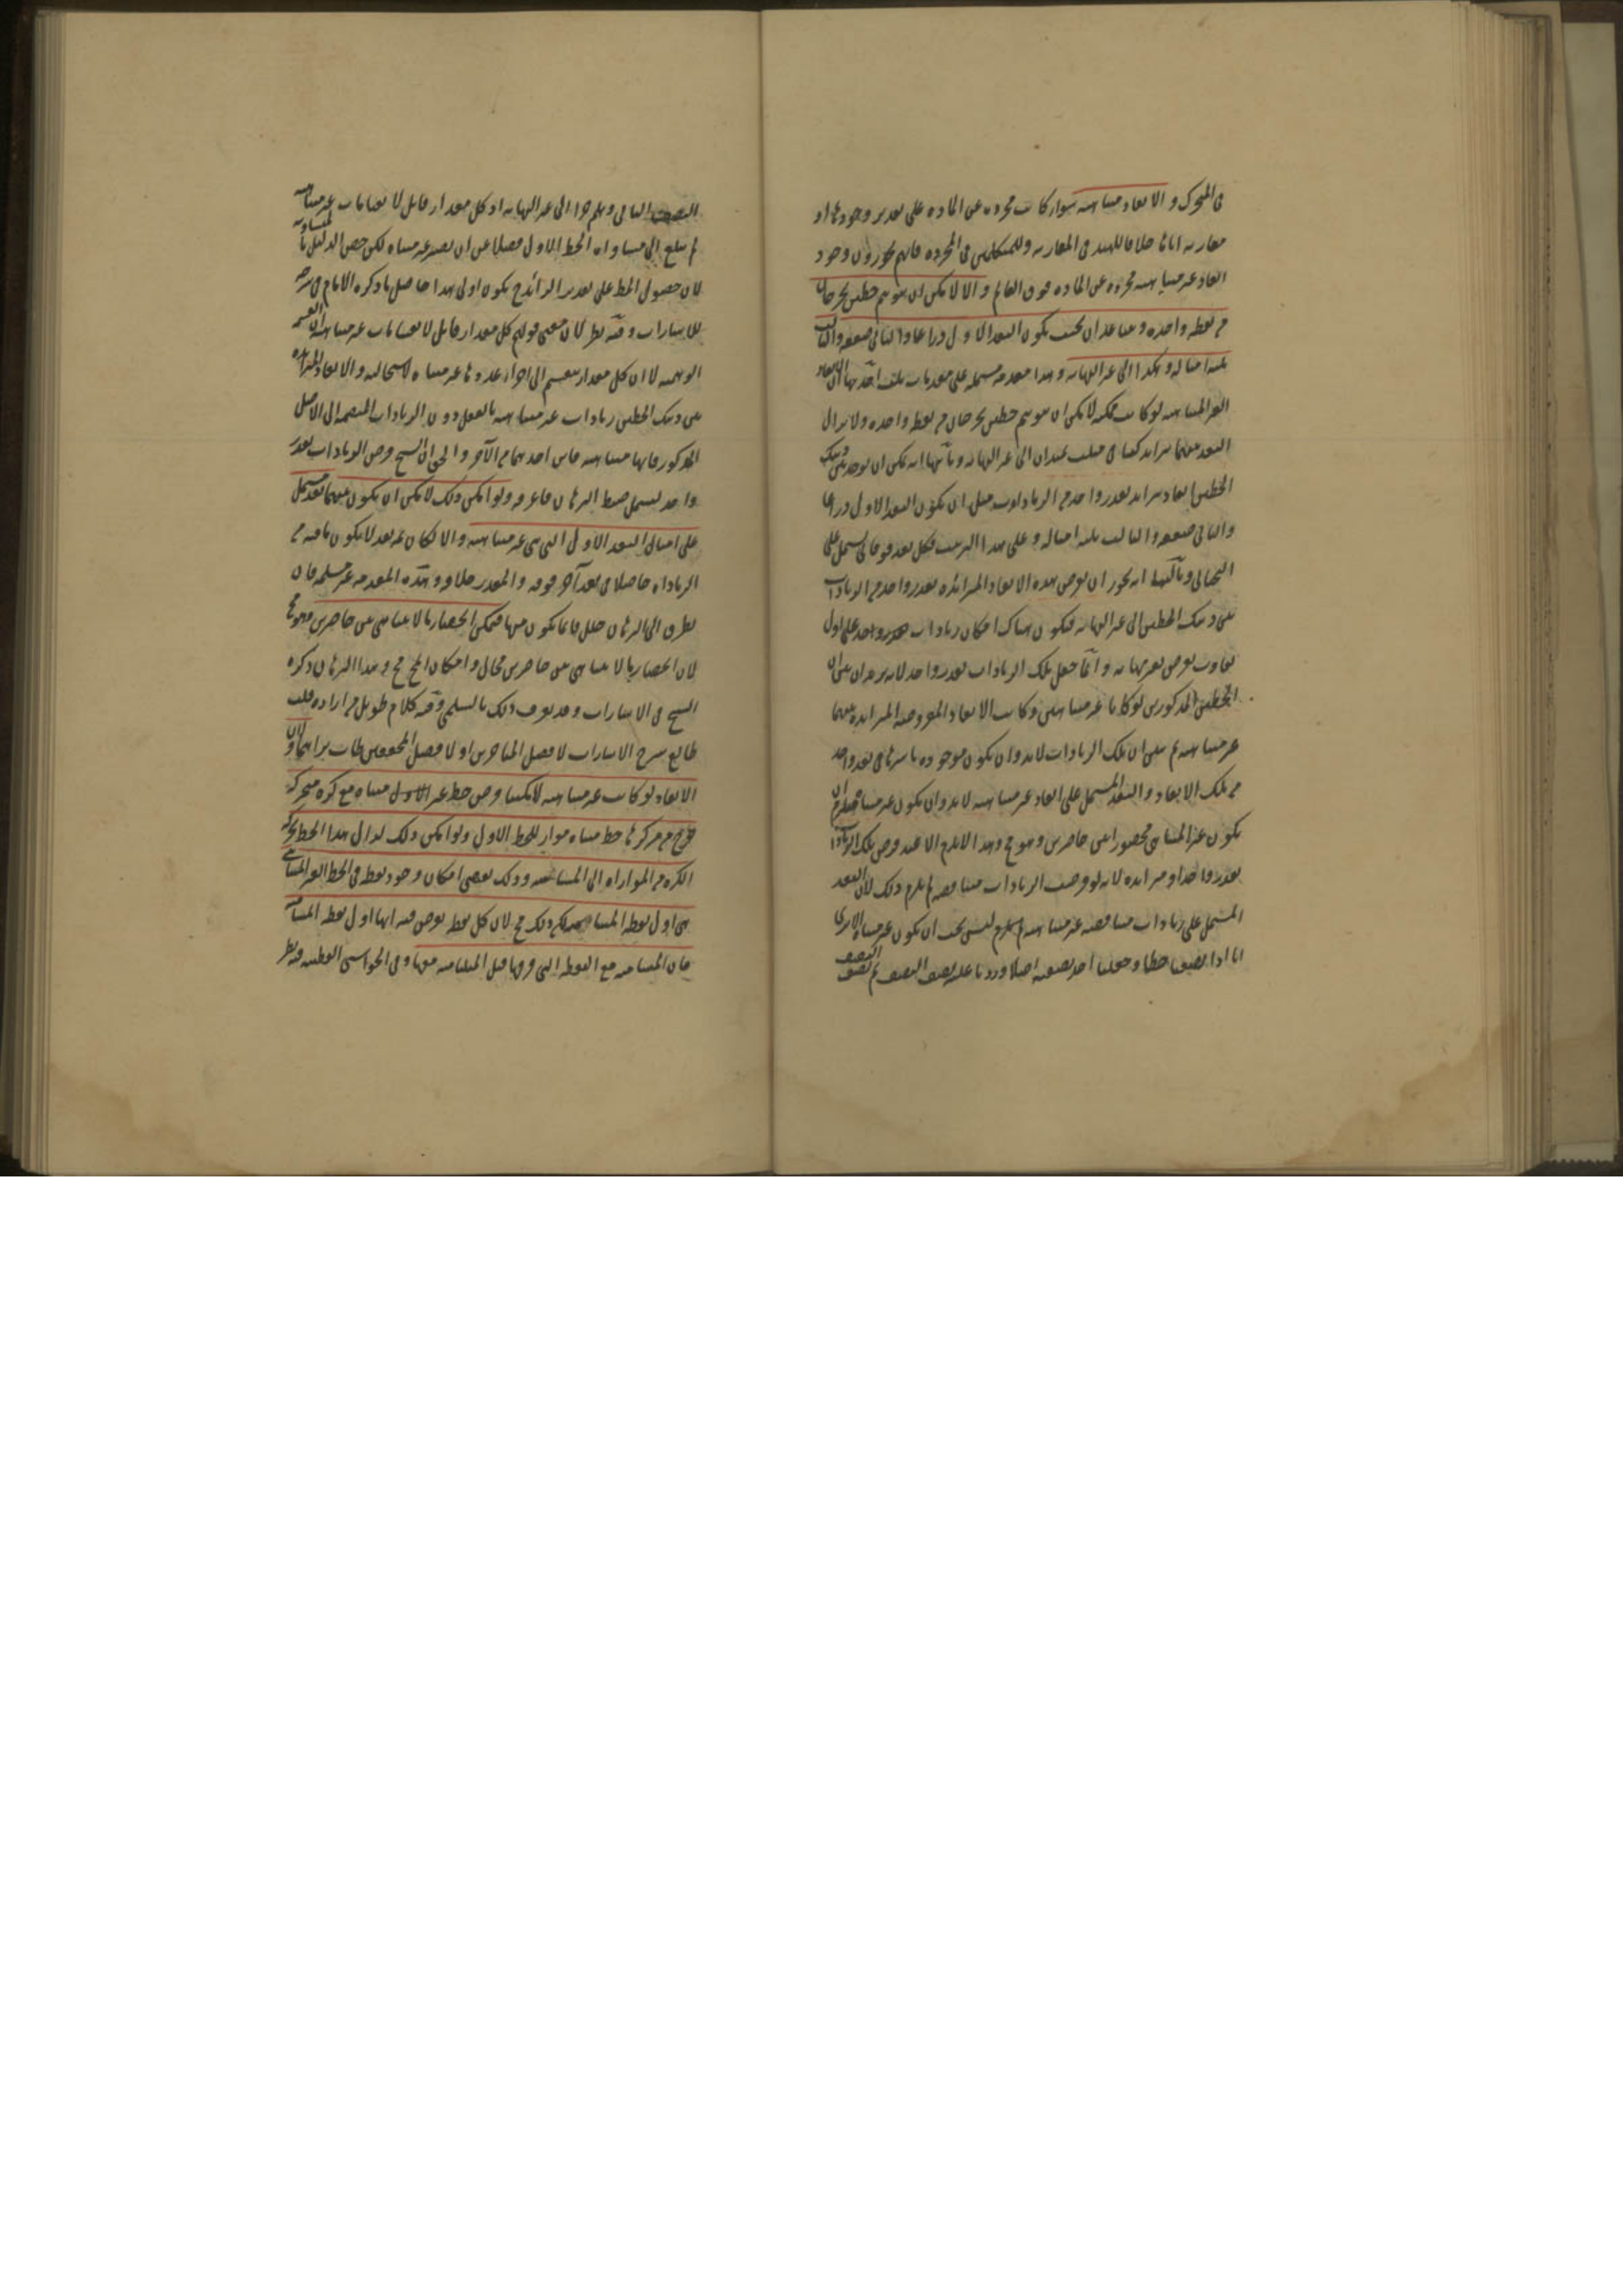 في المتحرك والابعاد متناهية سواء كانت مجردة عن المادة على تقدير وجودها او
مقارنة اياها خلافا للهند في المقارنة وللمتكلمين في المجردة فانهم يجوزون وجود
ابعاد غير متناهية مجردة عن المادة فوق العالم والا لامكن ان يتوهم خطين يخرجان
من نقطة واحدة ويتباعدان بحيث يكون البعد الاول ذراعا والثاني ضعفه والثالث
ثلثة امثاله وهكذا الى غير النهاية وهذا مقدمة مشتملة على مقدمات ثلث احديها ان الابعاد
الغير المتناهية لو كانت ممكنة لامكن ان يتوهم خطين يخرجان من نقطة واحدة ولا يزال
البعد بينهما يتزايد كساقي مثلث يمتدان الى غير النهاية وثانيها انه يمكن ان يوجد بين ذينك
الخطين ابعاد يتزايد بقدر واحد من الزيادات مثل ان يكون البعد الاول ذراعا
والثاني ضعفه والثالث ثلثة امثاله وعلى هذا الترتيب فكل بعد فوقاني يشتمل على
التحتاني وثالثها انه يجوز ان يفرض هذه الابعاد المتزائدة بقدر واحد من الزيادات
بين ذينك الخطين الى غير النهاية فيكون هناك امكان زيادات بقدر واحد على اول
تفاوت يفرض بغير نهاية وانما جعل تلك الزيادات بقدر واحد لانه يريد ان يبين ان
الخطين المذكورين لو كانا غير متناهيين وكانت الابعاد المفروضة المتزايدة بينهما
غير متناهية ثم يبين ان تلك الزيادات لابد وان يكون موجودة باسرها في بعد واحد
من تلك الابعاد والبعد المشتمل على ابعاد غير متناهية لابد وان يكون غير متناه فيلزم ان
يكون غير المتناهي محصورا بين حاصرين وهو مح وهذا لا يلزم الا عند فرض تلك الزيادات
بقدر واحد او متزايدة لانه لو فرضت الزيادات متناقصة لم يلزم ذلك لان البعد
المشتمل على زيادات متناقصة غير متناهية لم يلزم ليس يجب ان يكون غير متناه الا ترى
انا اذا نصفنا خطا وجعلنا احد نصفيه اصلا وزدنا عليه نصف النصف ثم نصف النصف
النصف الباقي وهلم جرا الى غير النهاية اذ كل مقدار قابل لانقسامات غير متناهية
لم يبلغ الى مساواة الخط الاول فضلا عن ان يصير غير متناه لكن خص الدليل بالمتساوية
لان حصول الخط على تقدير الزائد يكون اولى هذا حاصل ما ذكره الامام في شرحه
للاشارات وفيه نظر لان معنى قولهم كل مقدار قابل لانقسامات غير متناهية القسمة
الوهمية لا ان كل مقدار ينقسم الى اجزاء عددها غير متناه لاستحالته والابعاد المتزايدة
بين ذينك الخطين زيادات غير متناهية بالفعل دون الزيادات المنضمة الى الاصل
المذكور فانها متناهية فاين احدهما من الآخر والحق ان الشيخ فرض الزيادات بقدر
واحد ليسهل ضبط البرهان فاعرفه ولو امكن ذلك لامكن ان يكون بينهما بعد مشتمل
على امثال البعد الاول التي هي غير متناهية والا لكان ثمه بعد لا يكون ما فيه من
الزيادات حاصلا في بعد آخر فوقه والمقدر خلافه وهذه المقدمة غير مسلمة فان
يطرق الى البرهان خلل فانما يكون منها فيمكن انحصار ما لا يتناهى بين حاصرين وهو مح
لان انحصار ما لا يتناهى بين حاصرين محال وامكان المح مح وهذا البرهان ذكره
الشيخ في الاشارات وقد يعرف ذلك بالسلمي وفيه كلام طويل من اراده فليـ
طالع شرح الاشارات لافضل المتاخرين اولا فضل المحققين طاب ثراهما ولان
الابعاد لو كانت غير متناهية لامكننا فرض خط غير الاول متناه مع كرة متحركة
خرج من مركزها خط متناه مواز للخط الاول ولو امكن ذلك لزال هذا الخط بحركة
الكرة من الموازاة الى المسامتة وذلك يقتضي امكان وجود نقطة في الخط الغير المتناهي
هي اول نقطة المسامتة لكن ذلك مح لان كل نقطة يفرض فيه انها اول نقطة المسامتة
فان المسامتة مع النقطة التي فوقها قبل المسامتة معها وفي الحواشي القطبية فيه نظر